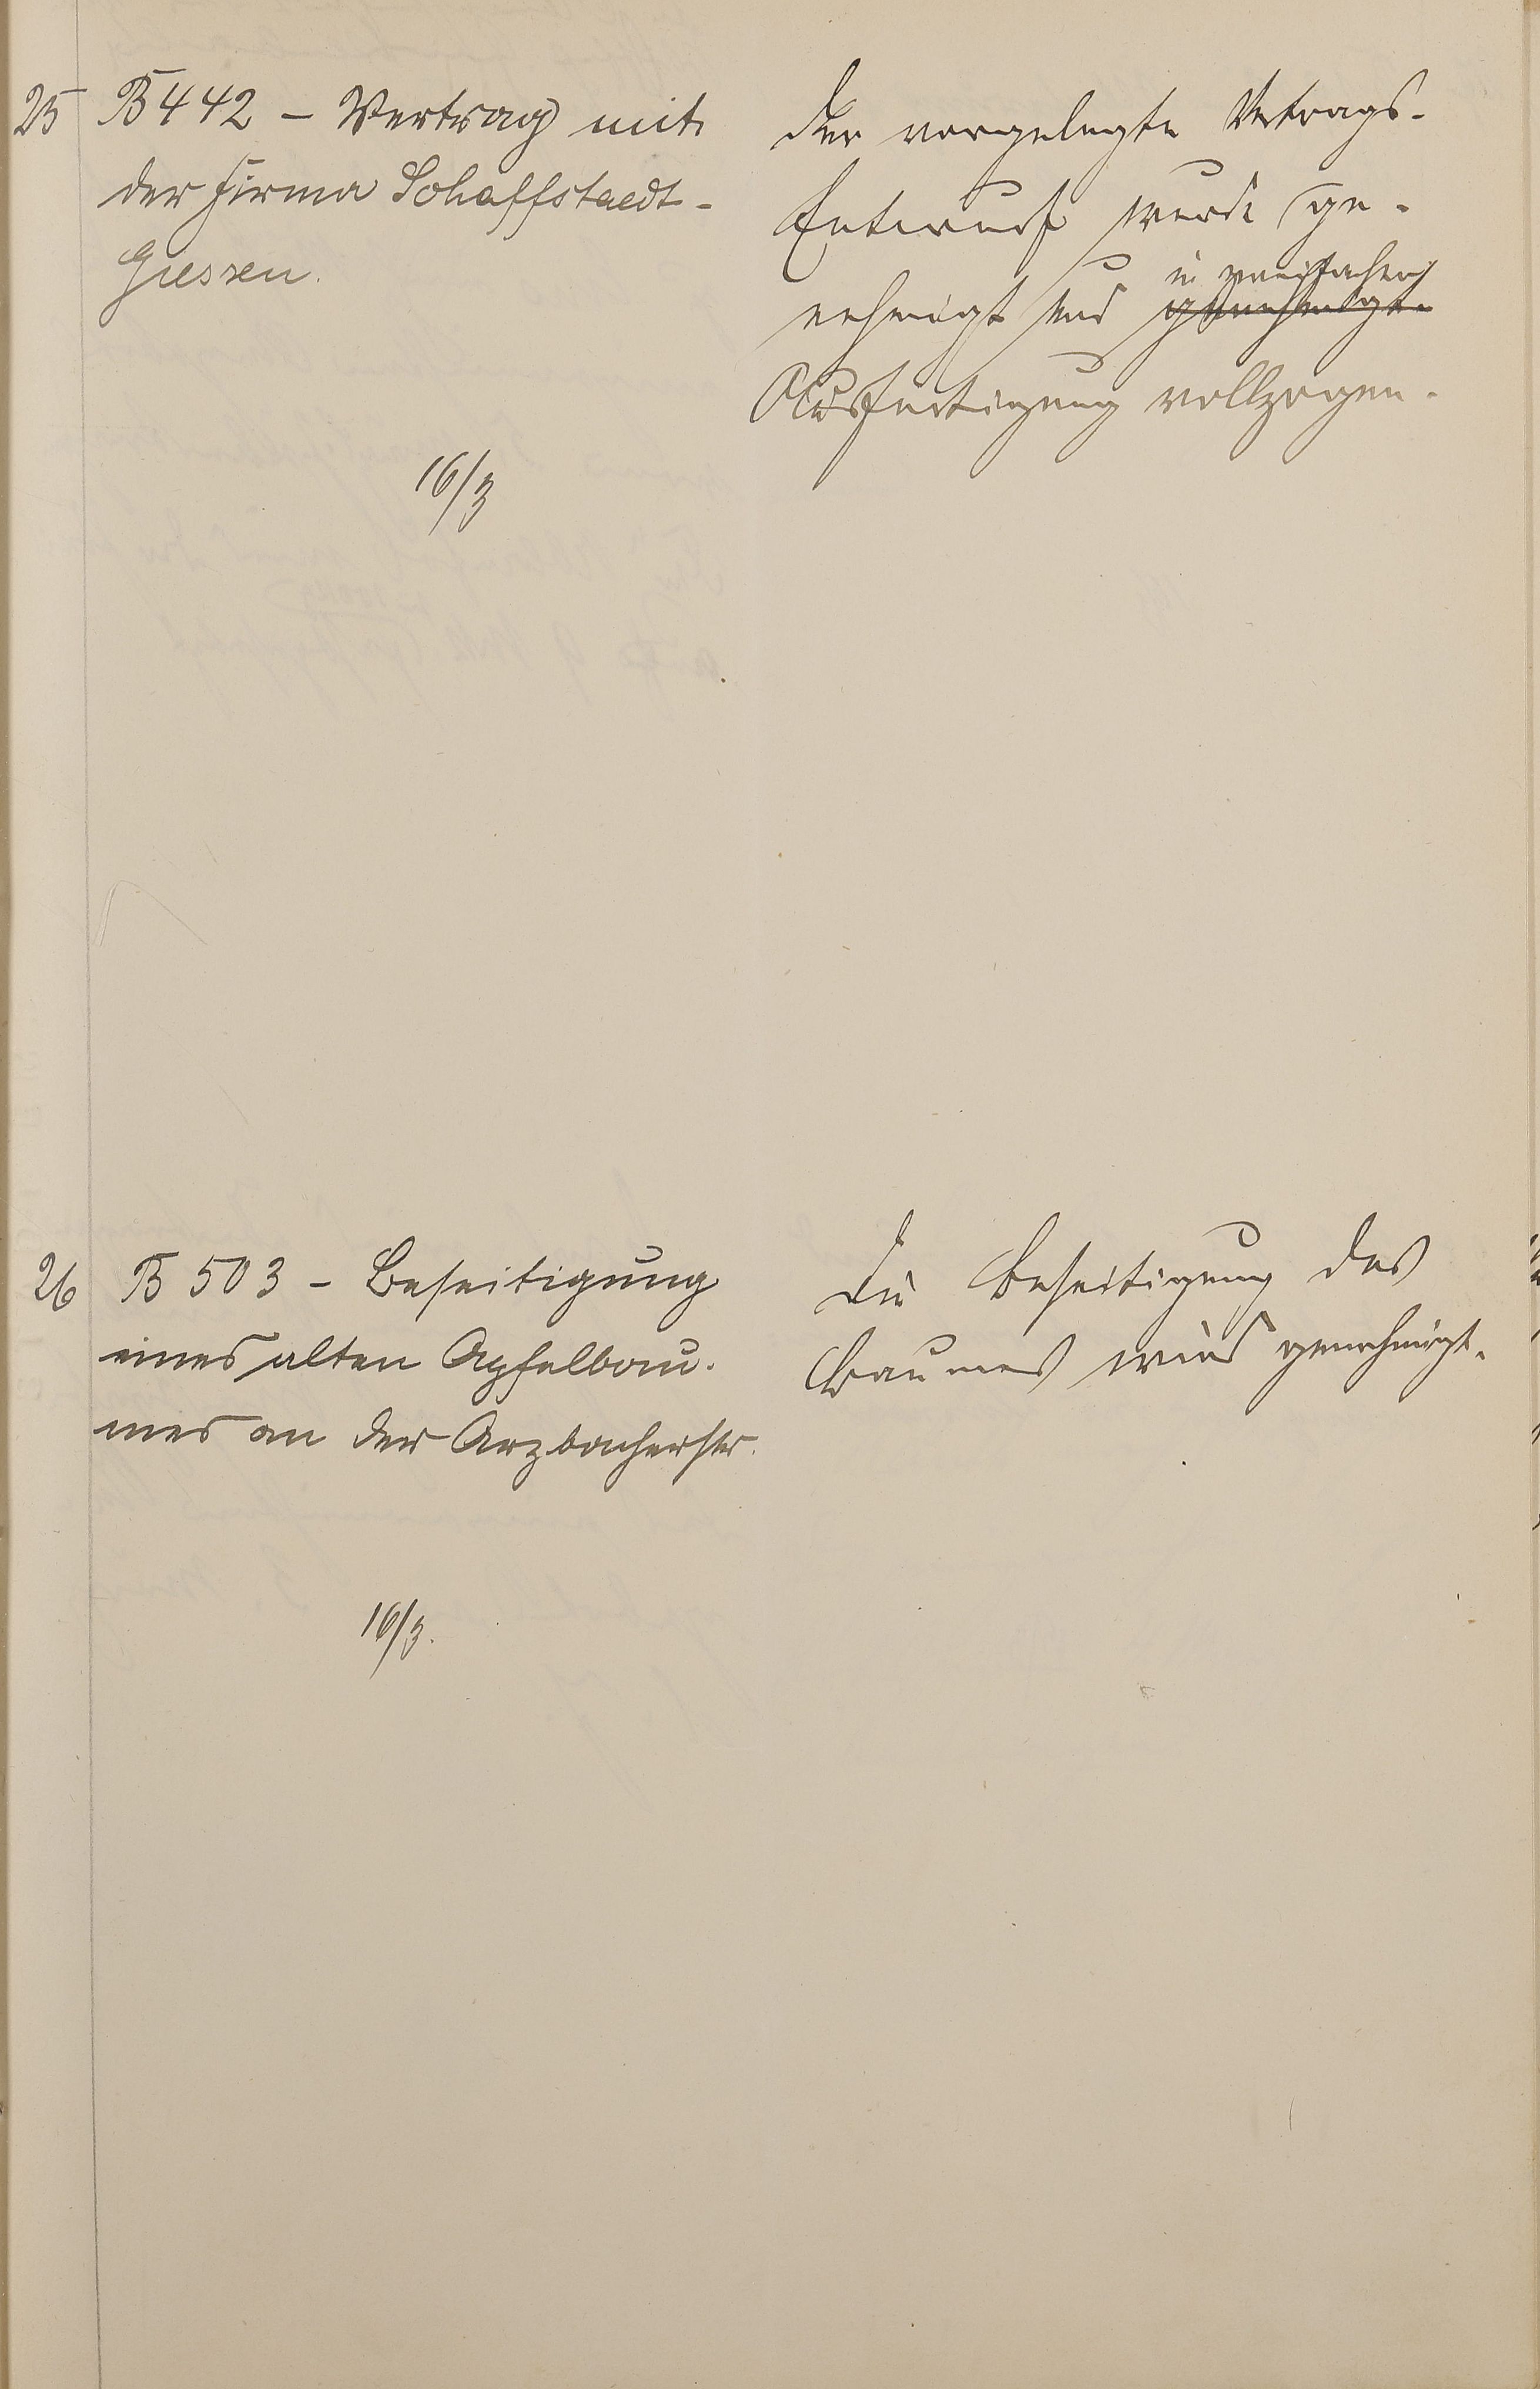 25 B 442 - Vertrag mit
der Firma Schaffstaedt-
Giessen.
16/3
Der vorgelegte Vertrags-
Entwurf wurde ge-
nehmigt und genehmigt
in zweifacher
Ausfertigung vollzogen.
26 B 503 - Beseitigung
eines alten Apfelbau-
mes an der Arzbacherstr.
16/3.
Die Beseitigung des
Baumes wird genehmigt.